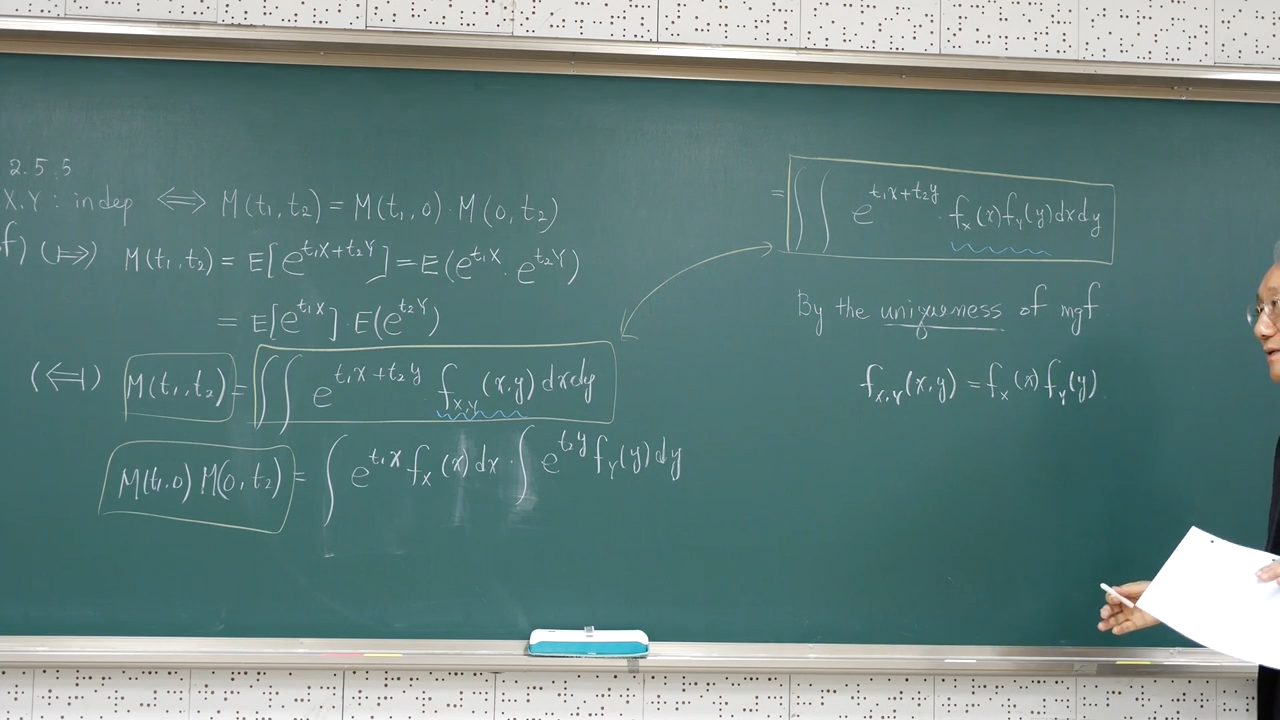 2.5.5
X,Y : indep ⟺ M(t₁,t₂) = M(t₁,0)·M(0,t₂)
f) (⟹) M(t₁,t₂) = E[e^{t₁X+t₂Y}] = E(e^{t₁X}·e^{t₂Y})
= E[e^{t₁X}]·E(e^{t₂Y})
(⟸) M(t₁,t₂) = ∫∫ e^{t₁x+t₂y} f_{X,Y}(x,y) dxdy
M(t₁,0) M(0,t₂) = ∫ e^{t₁x} f_X(x) dx · ∫ e^{t₂y} f_Y(y) dy
= ∫∫ e^{t₁x+t₂y} · f_X(x) f_Y(y) dxdy
By the uniqueness of mgf
f_{X,Y}(x,y) = f_X(x) f_Y(y)